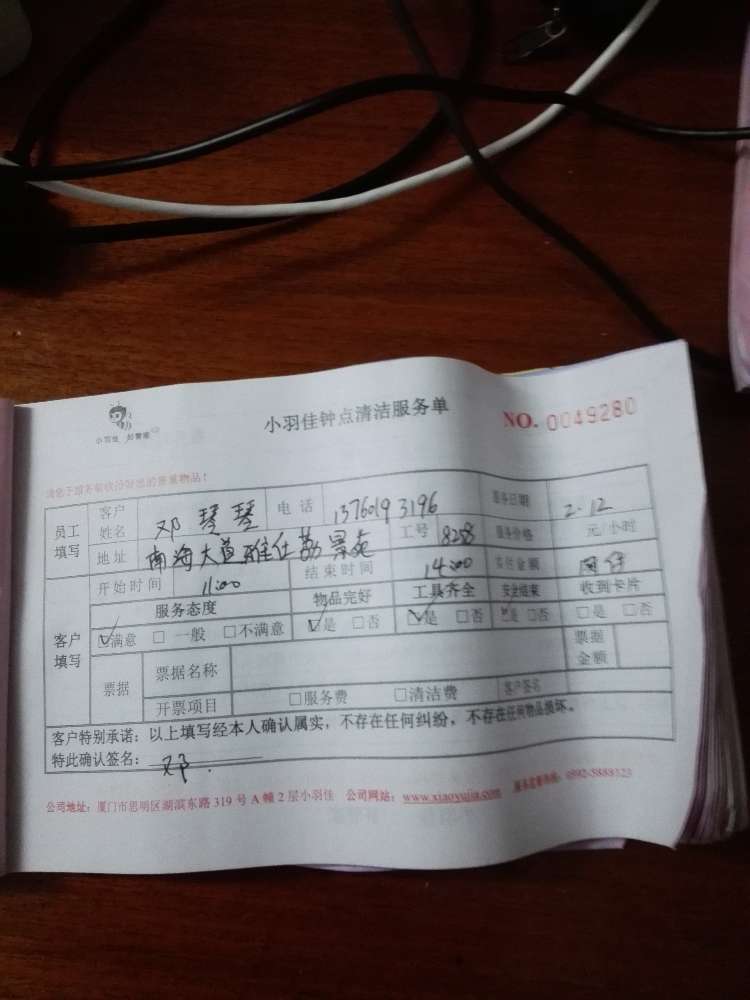 小羽佳 好管家
小羽佳钟点清洁服务单
NO. 0049280
员工填写 客户姓名 邓琴琴 电话 13760193196 服务日期 2.12
地址 南海大道雅仕荔景苑 工号 8258 服务价格 元/小时
开始时间 11:00 结束时间 14:00 实付金额
客户填写 服务态度 物品完好 工具齐全 安全结束 收到卡片
☑满意 □一般 □不满意 ☑是 □否 ☑是 □否 ☑是 □否 □是 □否
票据 票据名称 票据金额
开票项目 □服务费 □清洁费 客户签名
客户特别承诺：以上填写经本人确认属实，不存在任何纠纷，不存在任何物品损坏。
特此确认签名： 邓.
公司地址：厦门市思明区湖滨东路 319 号 A 幢 2 层小羽佳 公司网站：www.xiaoyujia.com